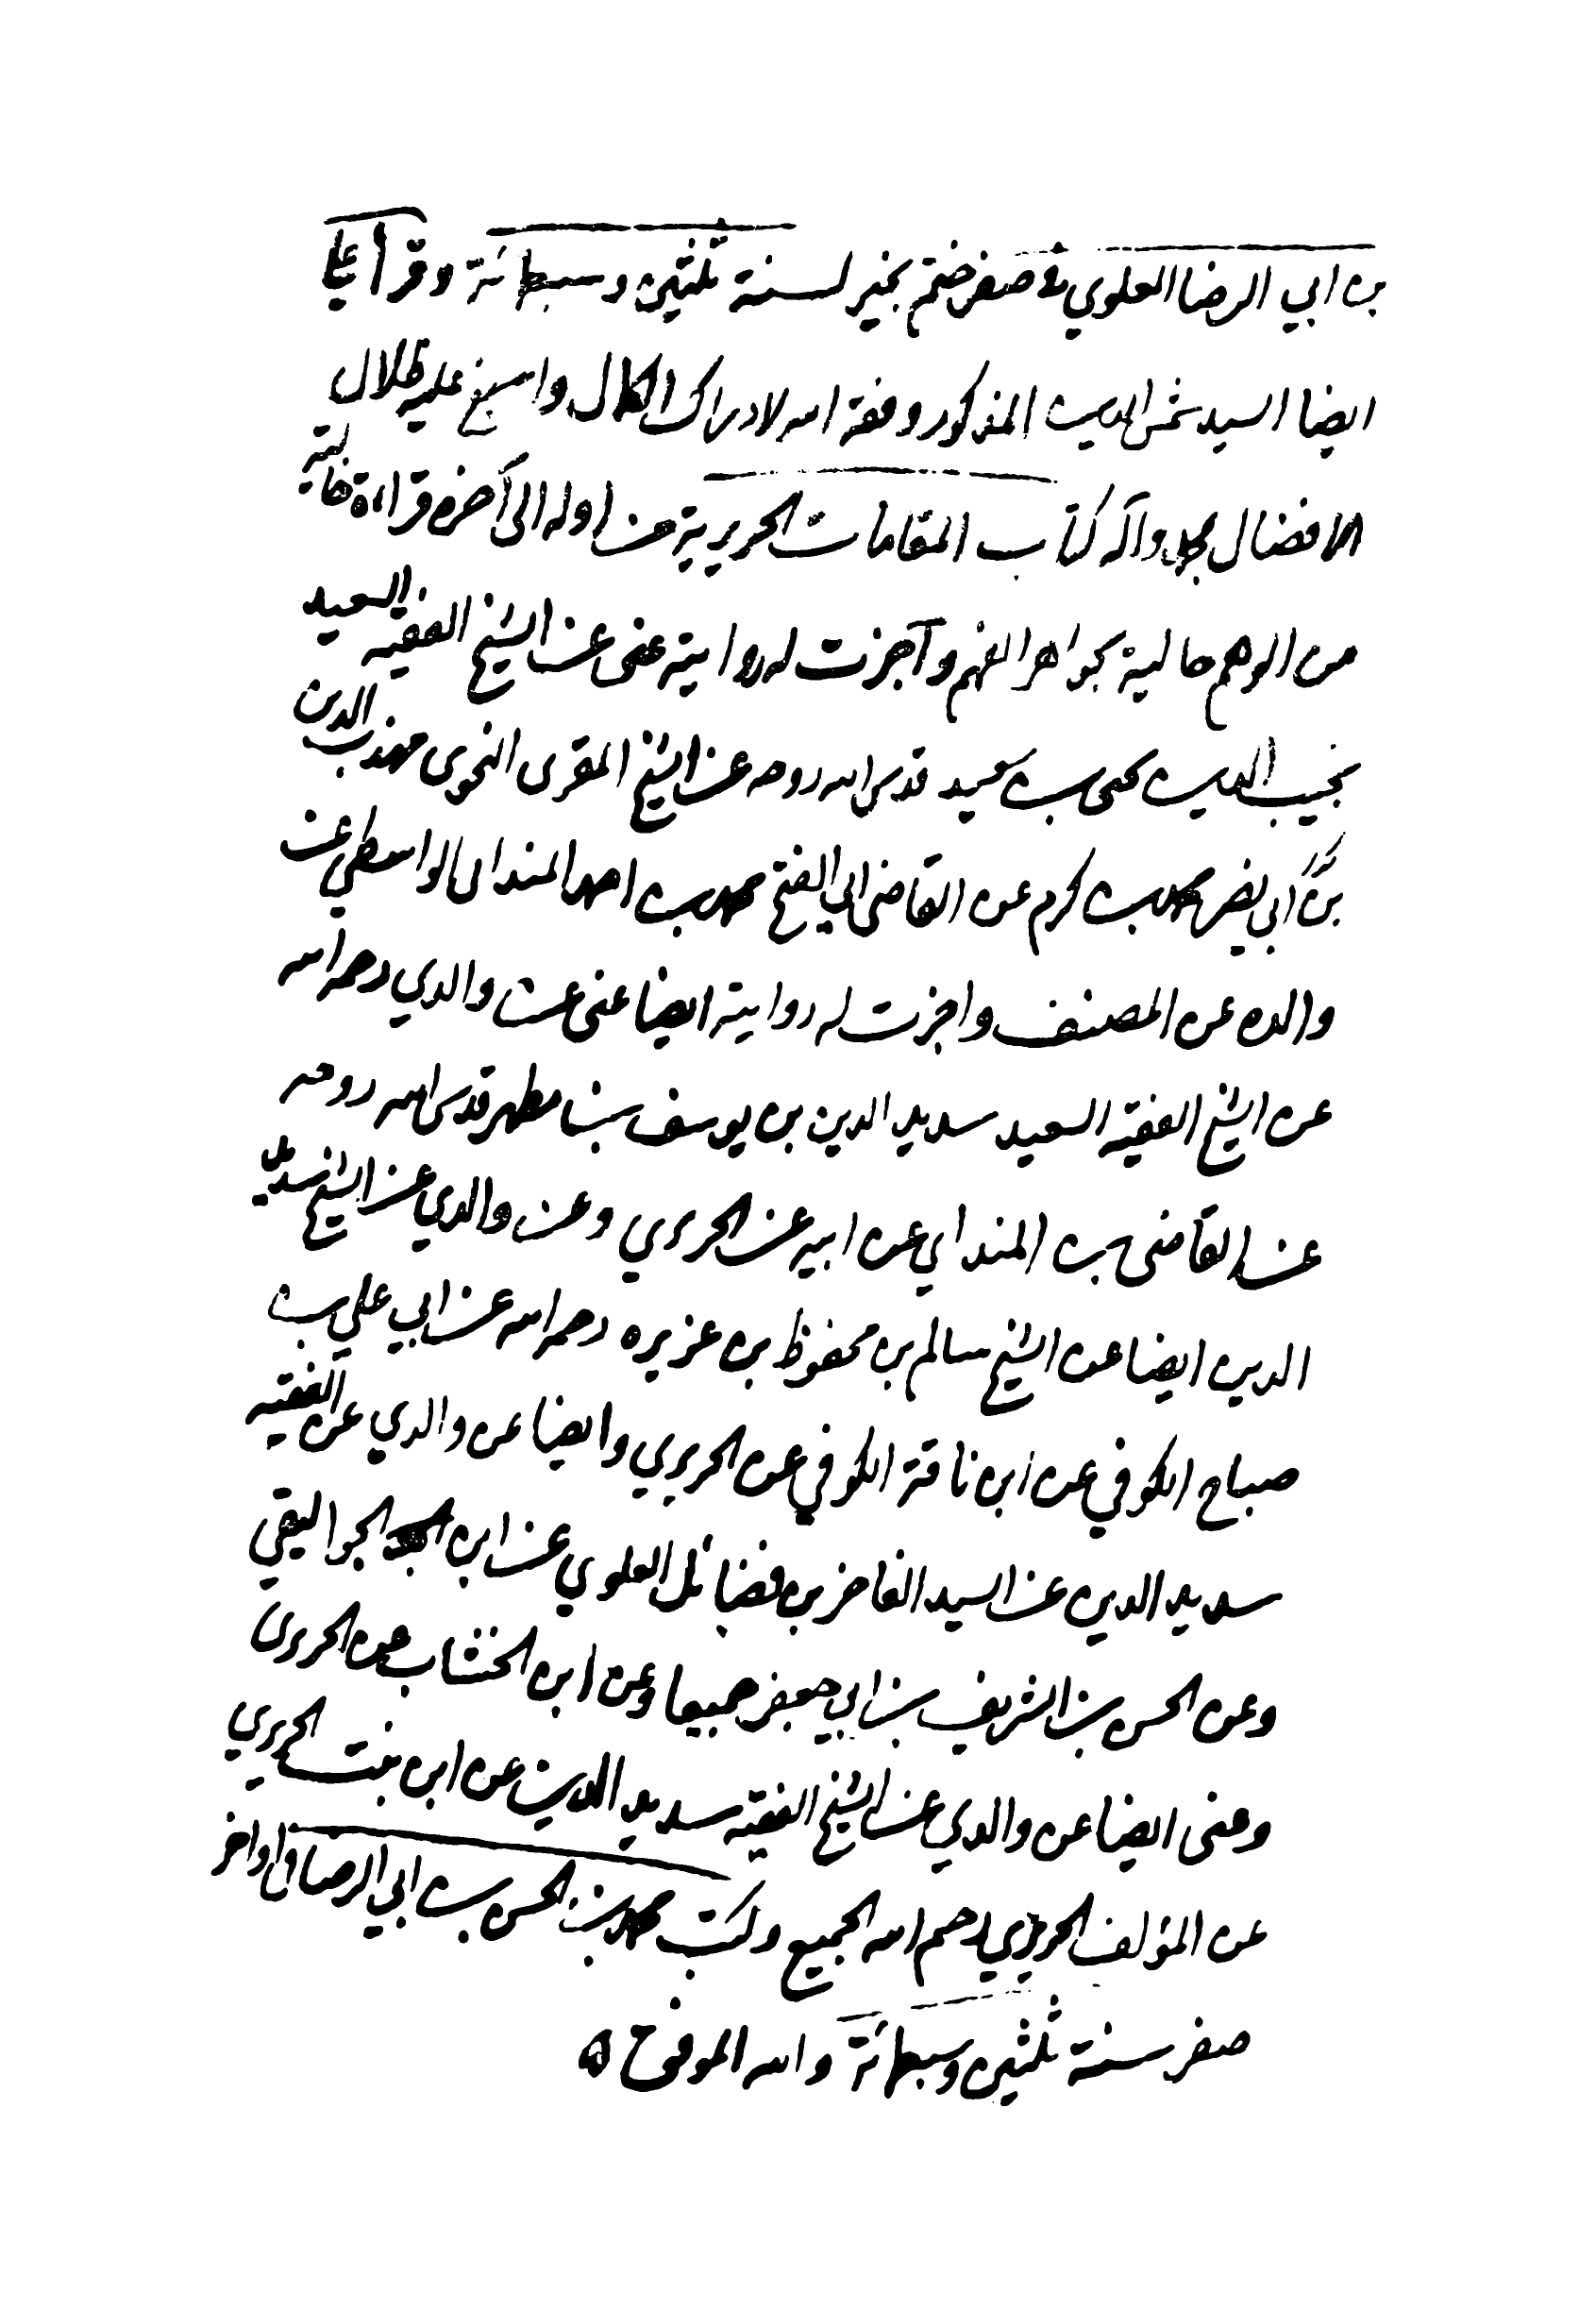 بن ابي الرضا العلوي في صفر ختم بخير لسنة ثلثين وسبعمائة وقرأ علي
ايضا السيد شمس الدين المذكور وفقه الله لادراك الكمال واسبغ عليه ظلال
الافضال بمحمد وآله كتاب المقامات الحريرية من اوله الى آخره قراءة خالية
من الوهم حالية بجواهر الفهم وآجزت له روايته عني عن الشيخ الفقيه السعيد
نجيب الدين يحيى بن سعيد قدس الله روحه عن الشيخ المقرى النحوى مهذب الدين
بن ابي نصر محمد بن كرم عن القاضي ابي الفتح محمد بن احمد المنداى الواسطي عن
والده عن المصنف واجزت له روايته ايضا عني عن والدي رحمه الله
عن الشيخ الفقيه السعيد سديد الدين بن يوسف بن مطهر قدس الله روحه
عن القاضي بن المنداي عن ابيه عن الحريري وعن والدي عن الشيخ سديد
الدين ايضا عن الشيخ سالم بن محفوظ بن عزيزه رحمه الله عن ابي علي بن
صباح الكوفي عن ابن ناقة الكوفي عن الحريري وايضا عن والدي عن الفقيه
سديد الدين عن السيد الفاخر بن فضائل العلوي عن ابن الجواليقي
وعن الحسن بن الشريف بن ابي جعفر جميعا وعن ابن الخشاب عن الحريرى
وعنى ايضا عن والدي عن الشيخ الفقيه سديد الدين عن ابن بنت الحريري
عن المؤلف الحريري رحم الله الجميع وكتب محمد بن الحسن بن ابي الرضا في اواخر
صفر سنة ثلثين وسبعمائة والله الموفق